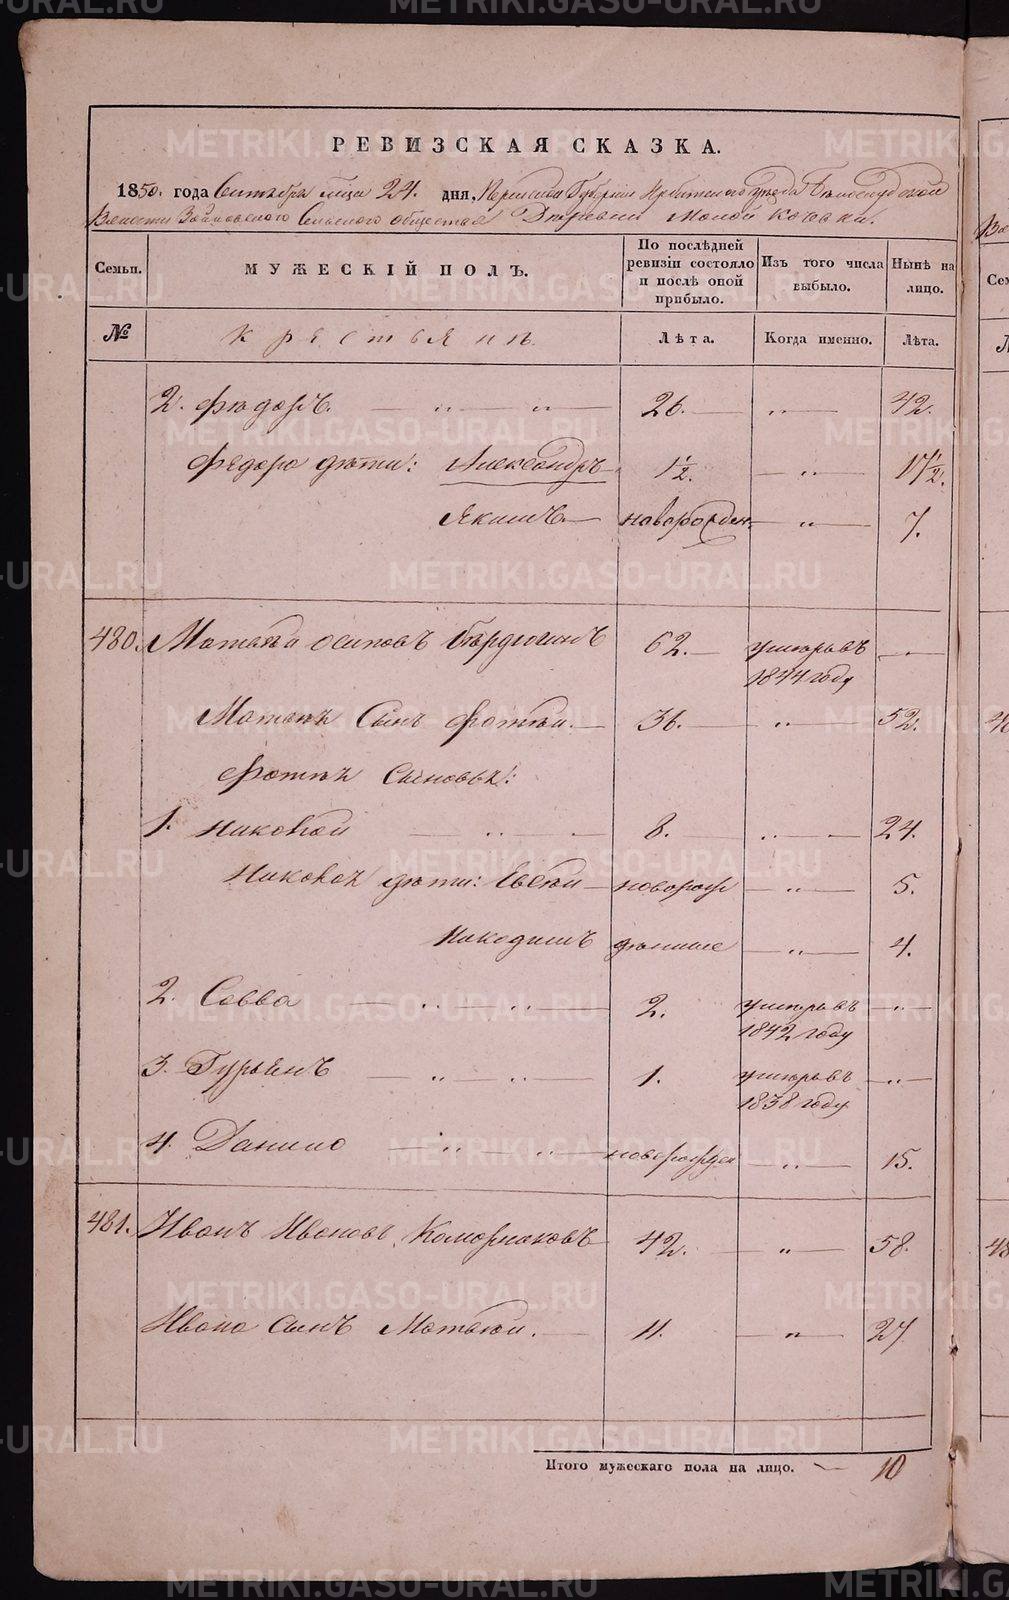 РЕВИЗСКАЯ СКАЗКА.
1850. года Сентября м͠ца 24. дня, Пермской Губернии Ирбитского уѣзда
Волости Зайковского Сельского общества Деревни Малой Кочевки.
Семьи.
МУЖЕСКІЙ ПОЛЪ.
По послѣдней ревизіи состояло и послѣ оной прибыло.
Изъ того числа выбыло.
Нынѣ на лицо.
№
крестьянъ
Лѣта.
Когда именно.
Лѣта.
2. Фѣдоръ. — „ „ — 26. — „ — 42.
Федора дѣти: Александръ 1½. — „ — 17½.
Якимъ — новорожден. — „ — 7.
480. Матвѣй Осиповъ Бердюгинъ 62. — умеръ въ 1844 году — „ —
Матвѣя Сынъ Фотѣй. — 36. — „ — 52.
Фотѣя Сыновья:
1. Никофой — „ — 8. „ — 24.
дѣти: Евсѣй — новорож — „ — 5.
Никодимъ — „ — 4.
2. Савва — „ — „ — 2. умеръ въ 1842 году — „ —
3. Гурьянъ — „ — „ — 1. умеръ въ 1838 году — „ —
4. Данило — „ — „ — новорожден — „ — 15.
481. Иванъ Ивановъ Комарниковъ 42. „ — 58.
Ивана Сынъ Матвѣй. — 11. — „ — 27.
Итого мужескаго пола на лицо. — 10
METRIKI.GASO-URAL.RU